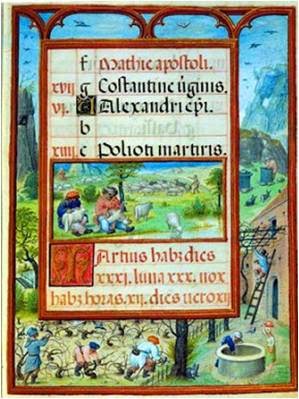 f Mathie apostoli.
xvii g Costantine v̄ginis.
vi. A Alexandri ep̄i.
b
xiiii c Polioti martiris.
Martius habȝ dies
xxxi. luna xxx. nox
habȝ horas. xii. dies uero xii